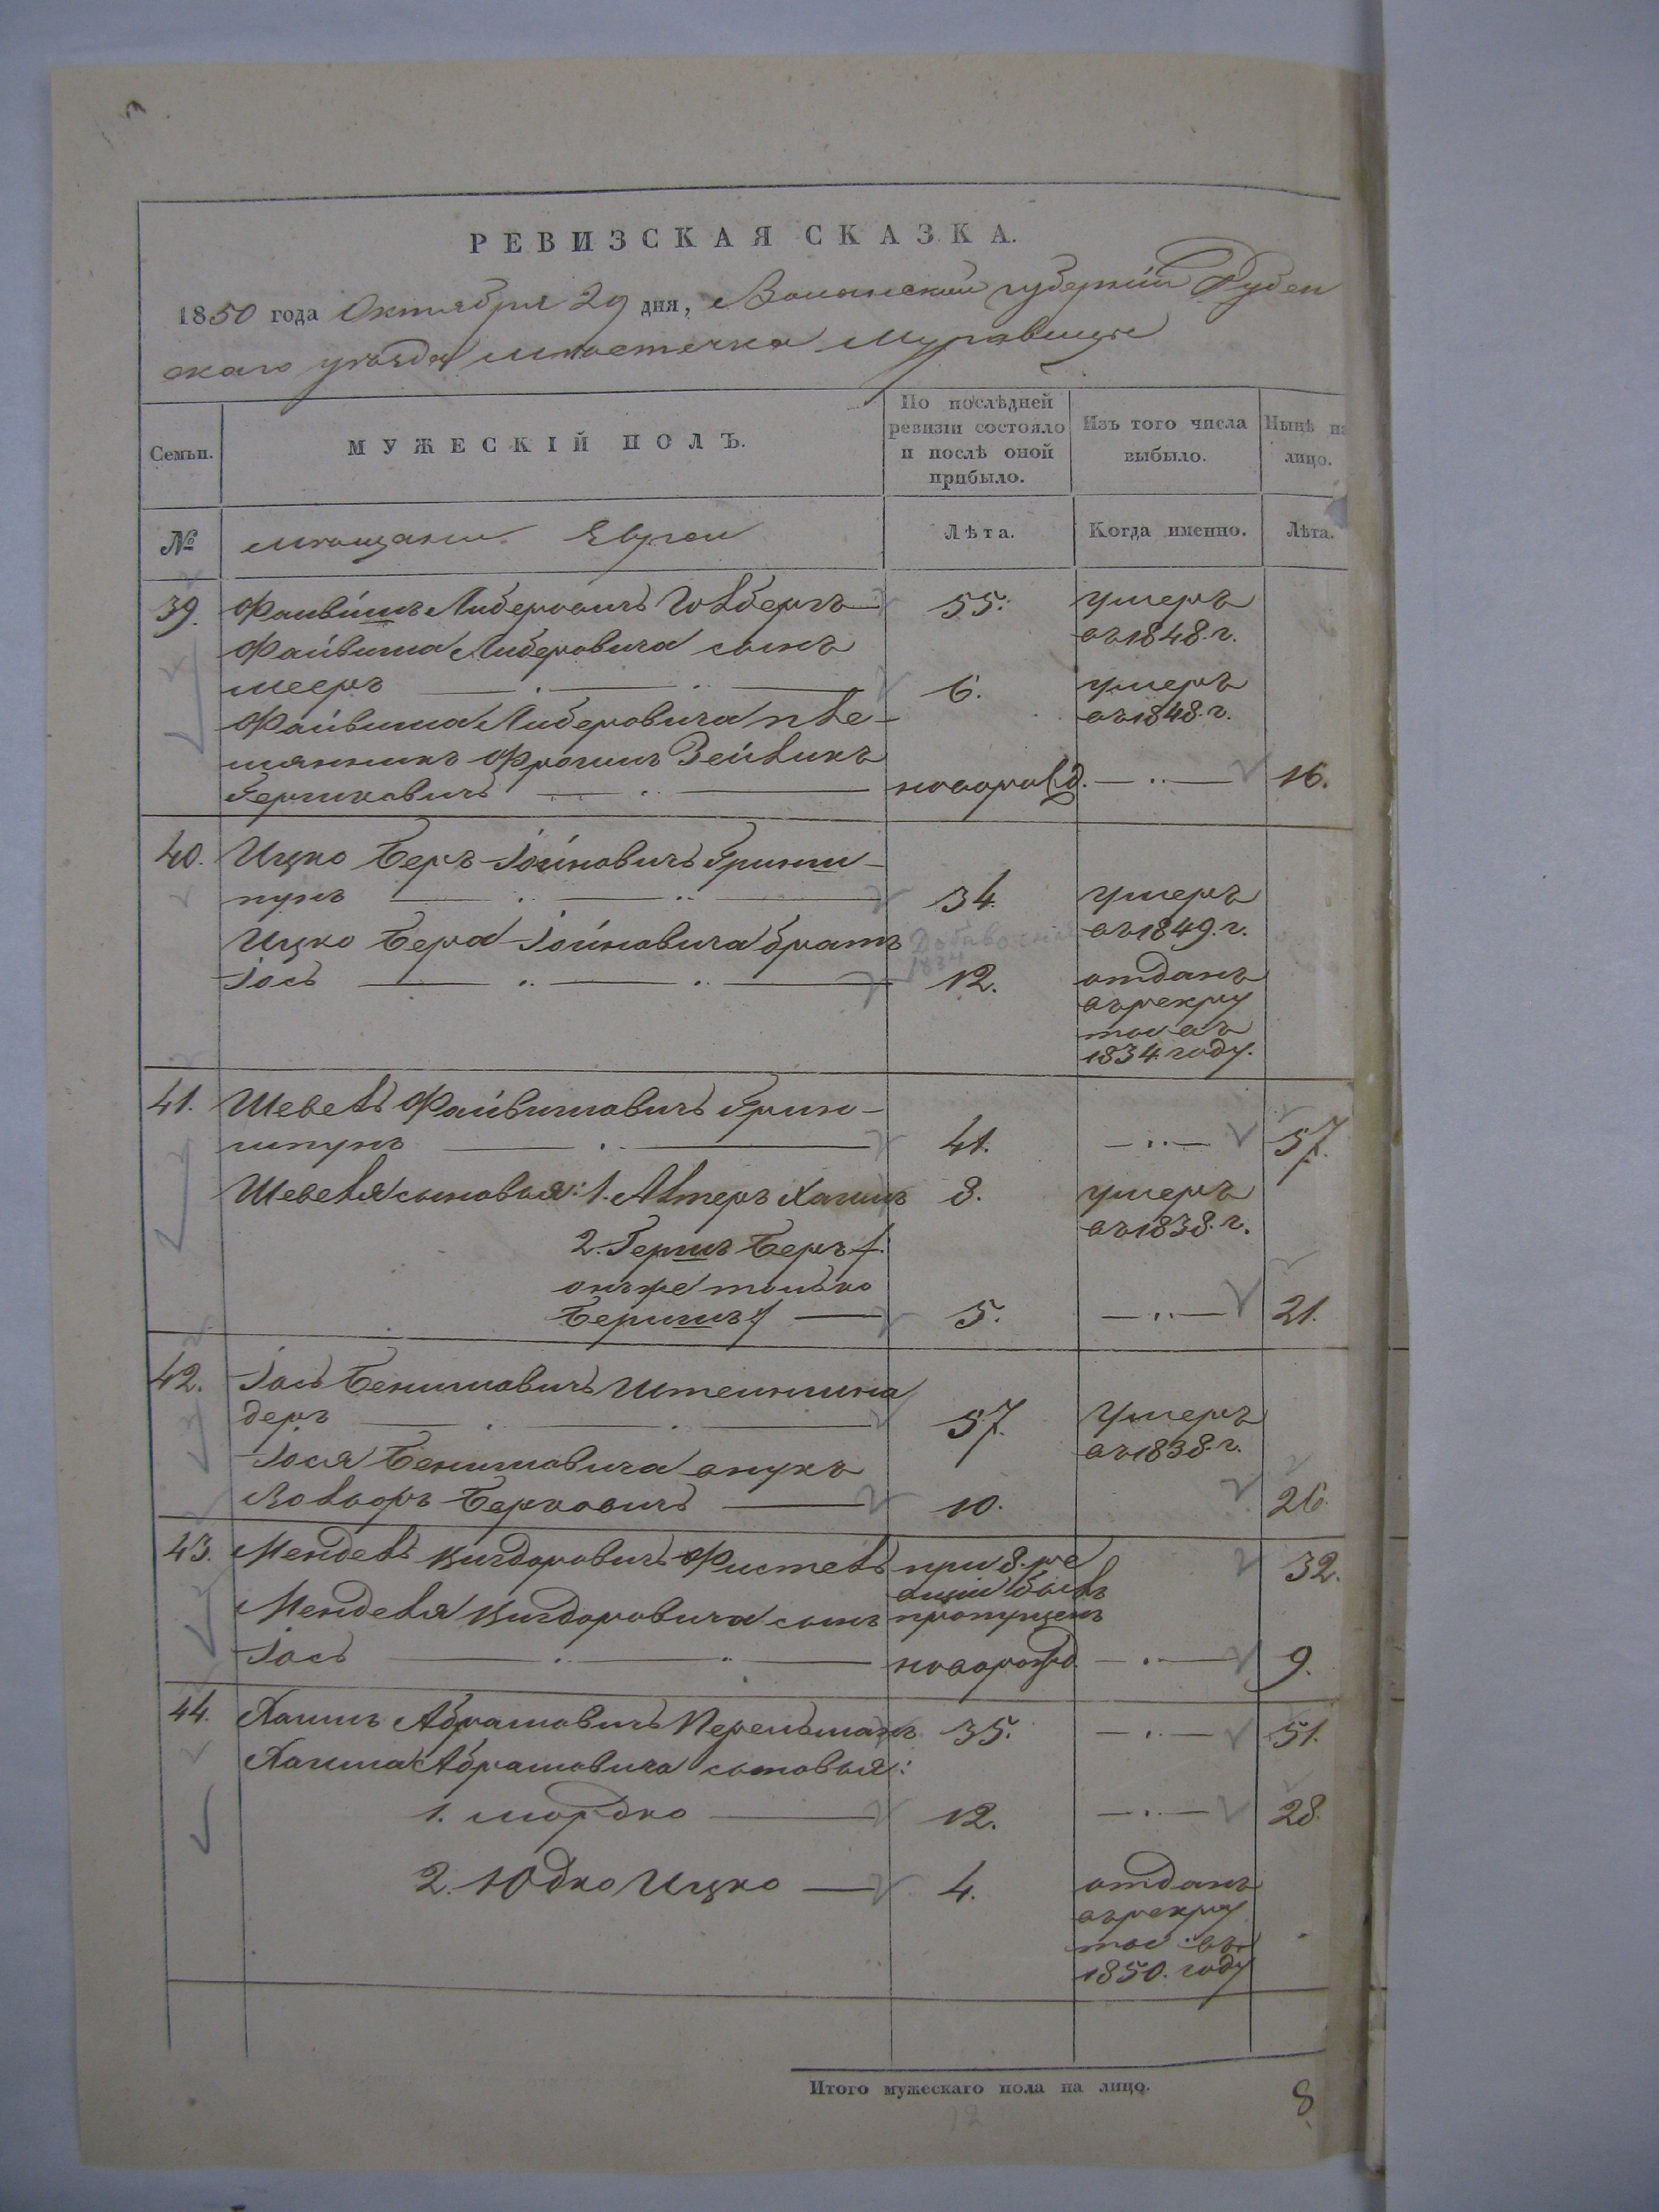 РЕВИЗСКАЯ СКАЗКА.
1850 года Октября 29 дня, Волынской губернии Дубен
скаго уезда местечка Муравицы
Семьи.
МУЖЕСКІЙ ПОЛЪ.
По послѣдней
ревизіи состояло
и послѣ оной
прибыло.
Изъ того числа
выбыло.
Нынѣ на
лицо.
№
мещане Евреи
Лѣта.
Когда именно.
Лѣта.
39. Файвишъ Либеровичъ Голберъ 55. умеръ
въ 1848. г.
Файвиша Либеровича сынъ
Мееръ 6. умеръ
въ 1848. г.
Файвиша Либеровича пле-
мянникъ Фроимъ Зейликъ
Гершковичъ новорожд. 16.
40. Ицко Беръ Іойновичъ Гринш-
пунъ 34 умеръ
въ 1849. г.
Ицко Бера Іойновича братъ
Іось 12. отданъ
въ рекру
ты въ
1834 году.
41. Шевель Файвишовичъ Грин-
шпунъ 41. 57.
Шевеля сыновья: 1. Алтеръ Хаимъ 8. умеръ
въ 1838. г.
2. Гершъ Беръ /:
онъ же только
Бершъ :/ 5. 21.
42. Іось Бенишовичъ Штейншна
деръ 57. Умеръ
въ 1838. г.
Іося Бенишовича внукъ
Волько Берковичъ 10. 26.
43. Мендель Вигдоровичъ Фистель при 8. ре 32.
визіи былъ
Менделя Вигдоровича сынъ пропущенъ
Іось новорожд. 9.
44. Хаимъ Абрамовичъ Перельманъ 35. 51.
Хаима Абрамовича сыновья:
1. Мордко 12. 28.
2. Юдко Ицко 4. отданъ
въ рекру
ты въ
1850. году
Итого мужескаго пола на лицо. 8
12